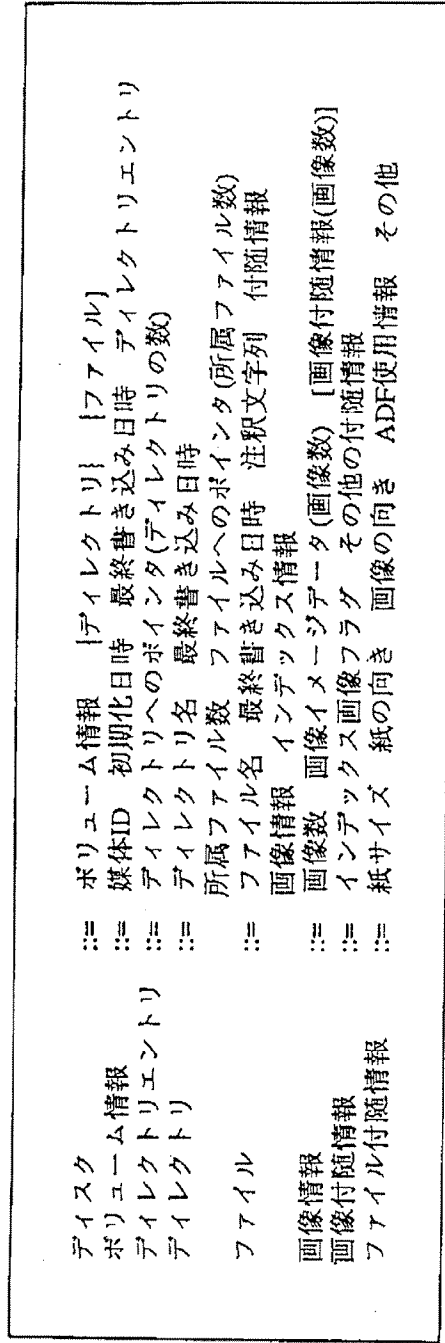 ディスク ::= ボリューム情報 {ディレクトリ} {ファイル}
ボリューム情報 ::= 媒体ID 初期化日時 最終書き込み日時 ディレクトリエントリ
ディレクトリエントリ ::= ディレクトリへのポインタ(ディレクトリの数)
ディレクトリ ::= ディレクトリ名 最終書き込み日時
所属ファイル数 ファイルへのポインタ(所属ファイル数)
ファイル ::= ファイル名 最終書き込み日時 注釈文字列 付随情報
画像情報 インデックス情報
画像情報 ::= 画像数 画像イメージデータ(画像数) [画像付随情報(画像数)]
画像付随情報 ::= インデックス画像フラグ その他の付随情報
ファイル付随情報 ::= 紙サイズ 紙の向き 画像の向き ADF使用情報 その他